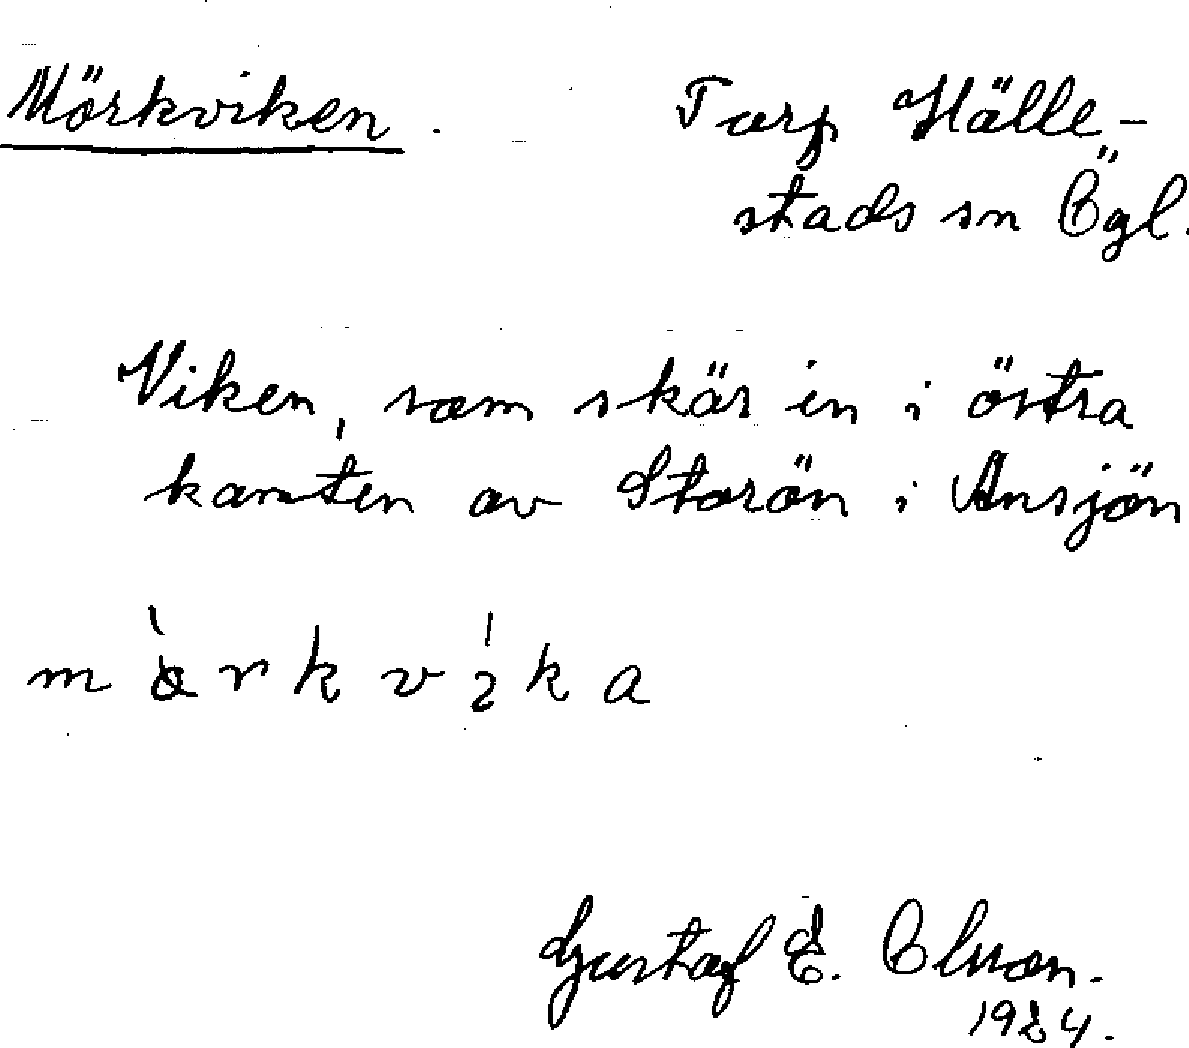 Mörkviken. Torp Hälle-
stads sn Ögl.
Viken, som skär in i östra
kanten av Storön i Ånsjön
Gustaf E. Olsson.